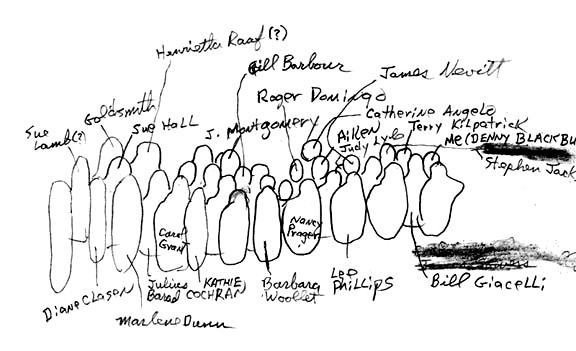 Henrietta Raaf (?)
Bill Barbour
James Nevitt
Roger Domingo
Goldsmith
Sue
Lamb(?)
Sue Hall
J. Montgomery
Catherine Angelo
Aiken
Judy Lyle
Terry Kilpatrick
Me (DENNY BLACKBU
Stephen Jack
Carol
Grant
Nancy
Prager
Diane Clason
Julius
Barad
KATHIE
COCHRAN
Barbara
Woollet
Leo
Phillips
Bill Giacelli
Marlene Dunn